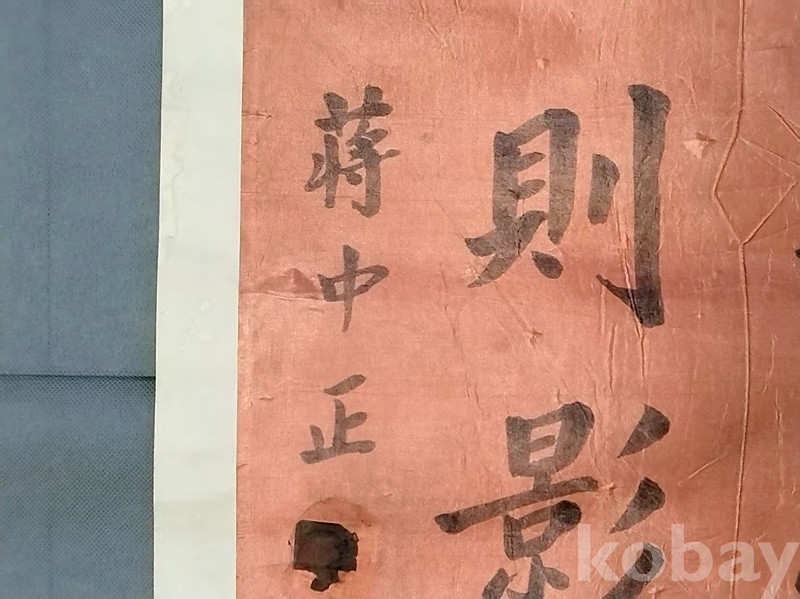 則影
蔣中正
kobay